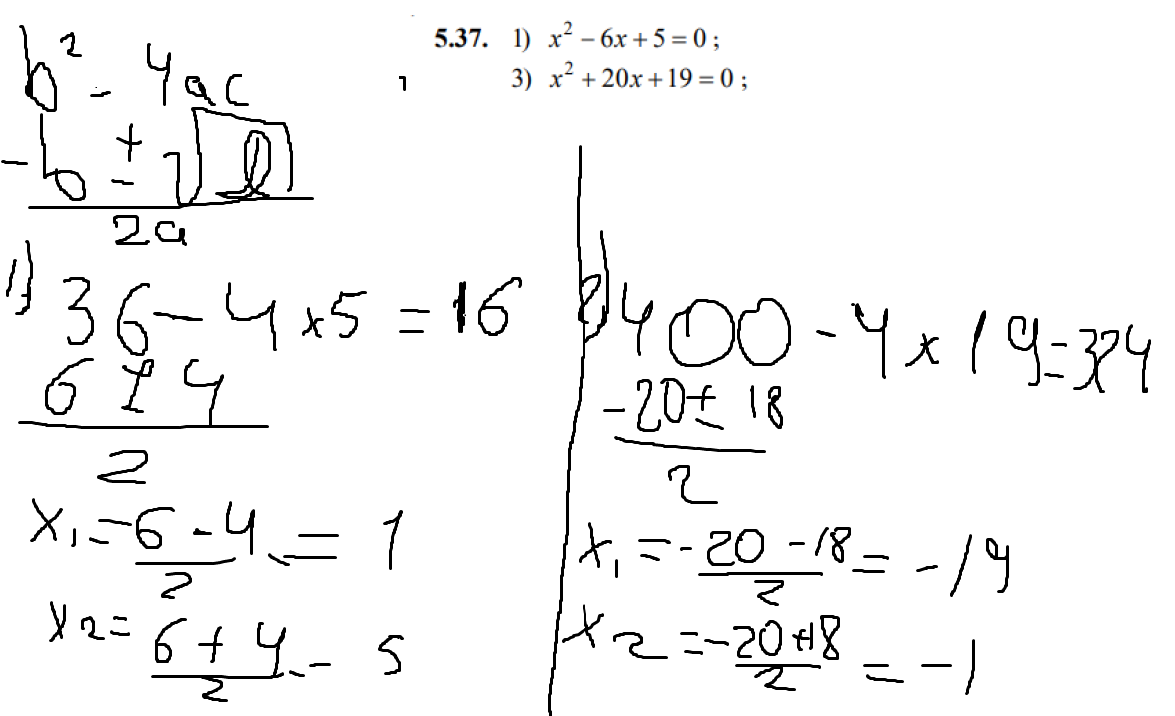 5.37. 1) x² − 6x + 5 = 0 ;
3) x² + 20x + 19 = 0 ;
b² - 4ac
-b ± √D
2a
1) 36 - 4 x 5 = 16
6 ± 4
2
x₁ = 6 - 4 = 1
2
x₂ = 6 + 4 - 5
2
2) 400 - 4 x 19 = 324
-20 ± 18
2
x₁ = -20 - 18 = -19
2
x₂ = -20 + 18 = -1
2